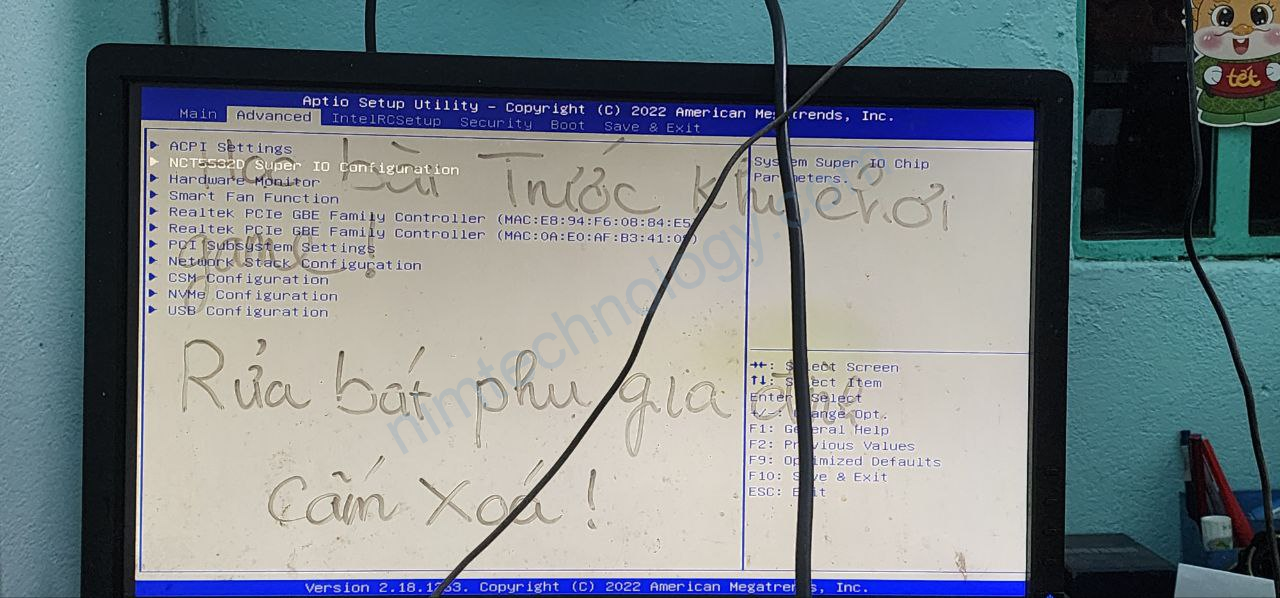 Aptio Setup Utility – Copyright (C) 2022 American Megatrends, Inc.
Main Advanced IntelRCSetup Security Boot Save & Exit
ACPI Settings
NCT5532D Super IO Configuration
Hardware Monitor
Smart Fan Function
Realtek PCIe GBE Family Controller (MAC:E8:94:F6:08:84:E5)
Realtek PCIe GBE Family Controller (MAC:0A:E0:AF:B3:41:
PCI Subsystem Settings
Network Stack Configuration
CSM Configuration
NVMe Configuration
USB Configuration
System Super IO Chip
Parameters.
→←: Select Screen
↑↓: Select Item
Enter: Select
+/-: Change Opt.
F1: General Help
F2: Previous Values
F9: Optimized Defaults
F10: Save & Exit
ESC: Exit
Version 2.18.1263. Copyright (C) 2022 American Megatrends, Inc.
bài Trước khi chơi
game!
Rửa bát phụ gia đình
Cấm Xoá!
tết
nimtechnology.com